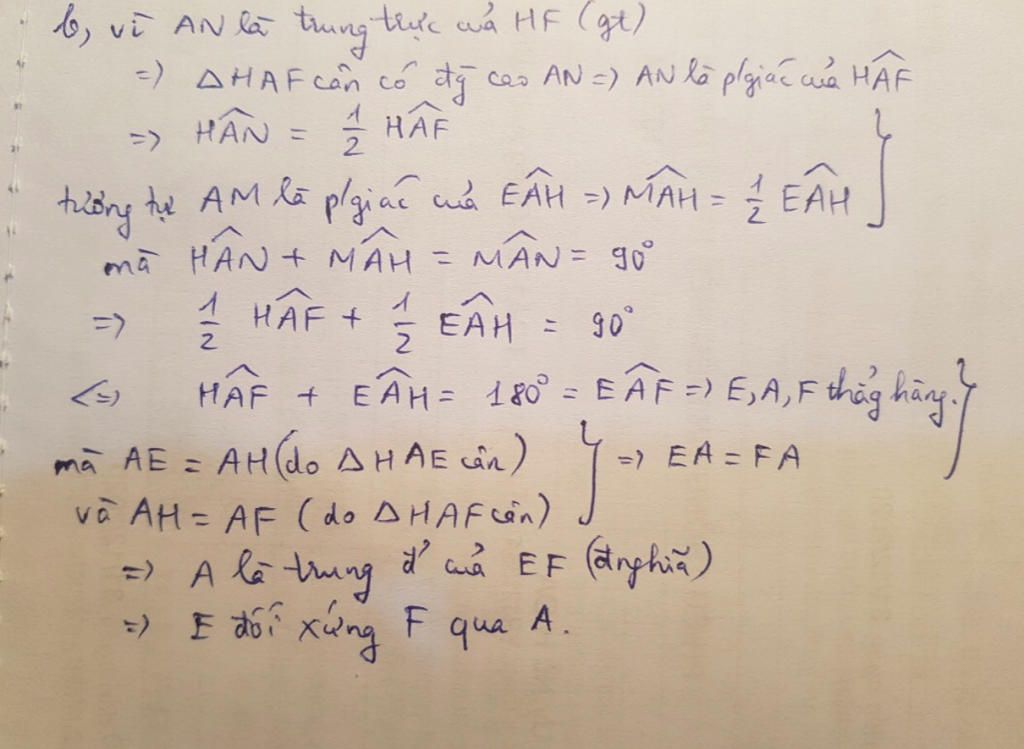 b, vì AN là trung trực của HF (gt)
=> ΔHAF cân có đg̃ cao AN => AN là p/giác của HÂF
=> HÂN = 1/2 HÂF
tương tự AM là p/giác của EÂH => MÂH = 1/2 EÂH
mà HÂN + MÂH = MÂN = 90°
=> 1/2 HÂF + 1/2 EÂH = 90°
<=> HÂF + EÂH = 180° = EÂF => E, A, F thẳg hàng.
mà AE = AH (do ΔHAE cân) => EA = FA
và AH = AF (do ΔHAF cân)
=> A là trung đ' của EF (đ/nghiã)
=> E đối xứng F qua A.